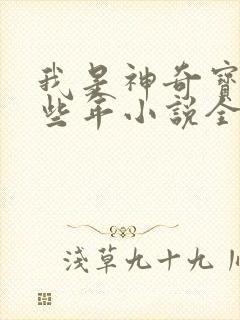 我是神奇寶
些年小説全
浅草九十九